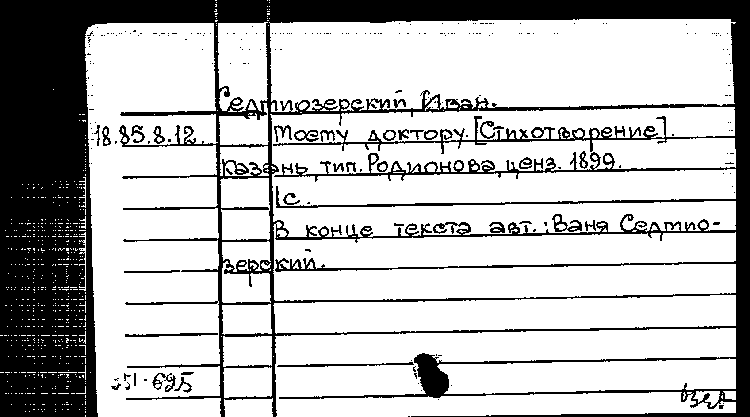 Седмиозерский, Иван.
18.85.8.12. Моему доктору. [Стихотворение].
Казань, тип. Родионова, ценз. 1899.
1с.
В конце текста авт.: Ваня Седмио-
зерский.
351-695